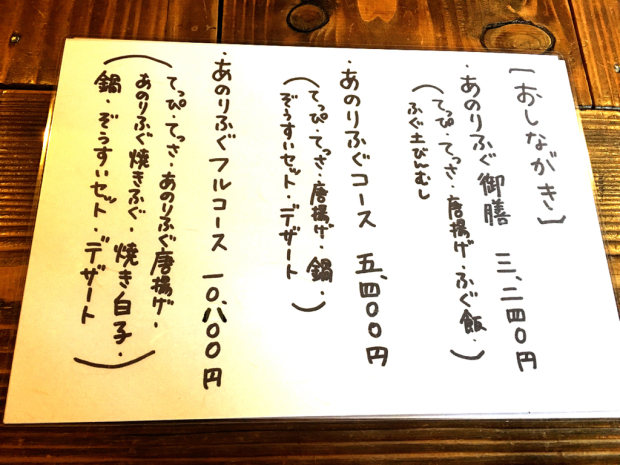 【おしながき】
・あのりふぐ御膳 三、二四〇円
（てっぴ・てっさ・唐揚げ・ふぐ飯・
ふぐ土びんむし）
・あのりふぐコース 五、四〇〇円
（てっぴ・てっさ・唐揚げ・鍋・
ぞうすいセット・デザート）
・あのりふぐフルコース 一〇、八〇〇円
（てっぴ・てっさ・あのりふぐ唐揚げ・
あのりふぐ焼きふぐ・焼き白子・
鍋・ぞうすいセット・デザート）